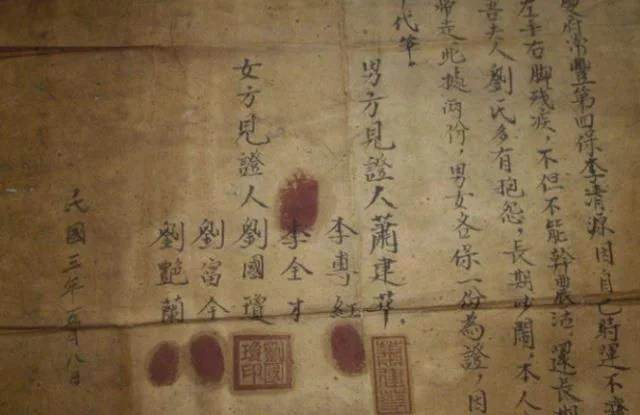 府常豐第四保李清源因自己時運不濟
左手右脚残疾、不但不能幹農活、還長期
吾夫人劉氏多有抱怨，長期吵闹，本人
帰走此據兩份，男女各保一份為證，因
代筆。
男方見證人蕭建華，
李專紅
李全才
女方見證人劉國瓊
劉富全
劉艷蘭
民國三年一月八日
劉國瓊印